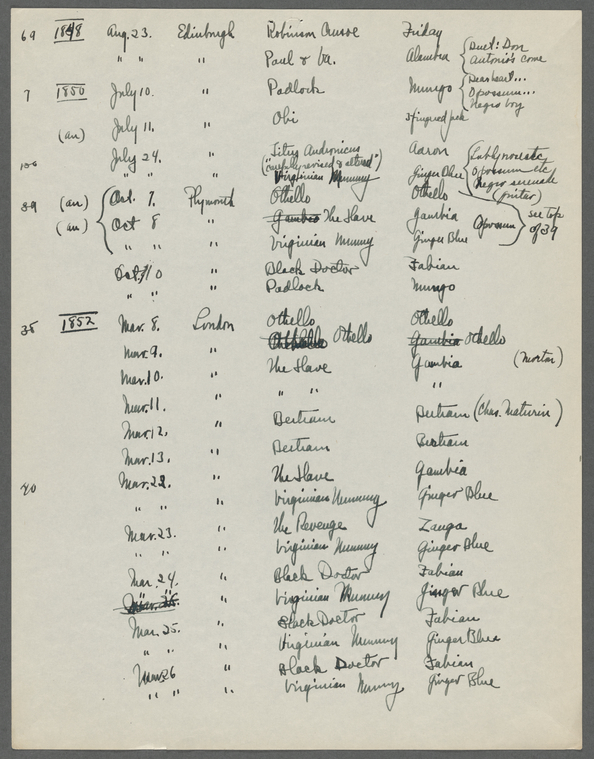 69 1848 Aug. 23. Edinburgh Robinson Crusoe Friday
" " " Paul & Va. Alambra {Duet: Don Antonio's come
7 1850 July 10. " Padlock Mungo {Dearheart... Opossum... Negro boy
(an) July 11. " Obi 3 fingered Jack
106 July 24. " Titus Andronicus Aaron
("carefully revised & altered")
" " " Virginian Mummy Ginger Blue Opossum etc
89 (an) Oct. 7. Plymouth Othello Othello Negro serenade
(an) Oct 8 " Gambia The Slave Gambia Opossum see top of 39
" " " Virginian Mummy Ginger Blue
Oct. 10 " Black Doctor Fabian
" " " Padlock Mungo
38 1852 Mar. 8. London Othello Othello
Mar. 9. " Othello Gambia Othello
Mar. 10. " The Slave Gambia (Morton)
Mar. 11. " " " "
Mar. 12. " Bertram Bertram (Chas. Maturin)
Mar. 13. " Bertram Bertram
40 Mar. 22. " The Slave Gambia
" " " Virginian Mummy Ginger Blue
Mar. 23. " The Revenge Zanga
" " " Virginian Mummy Ginger Blue
Mar. 24. " Black Doctor Fabian
" " " Virginian Mummy Ginger Blue
Mar. 25. " Black Doctor Fabian
" " " Virginian Mummy Ginger Blue
Mar. 26 " Black Doctor Fabian
" " " Virginian Mummy Ginger Blue